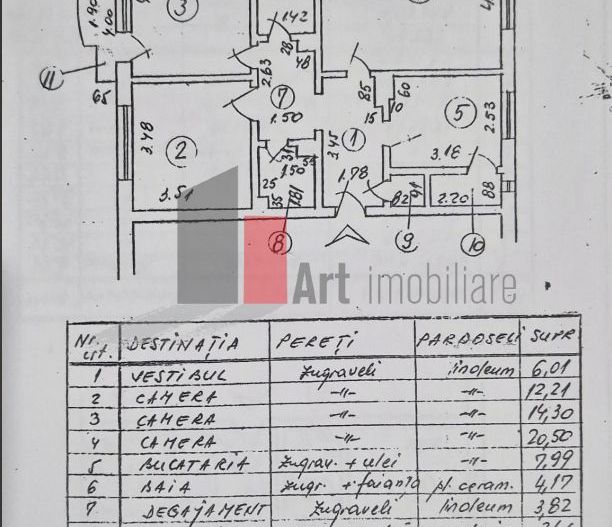 1.90
4.00
3
1.42
28
48
2.63
11
65
7
1.50
85
15
10
60
5
2.53
3.48
2
3.51
3.45
1
3.18
31
1.50
25
35
1.81
1.78
82
91
2.20
88
8
9
10
Art imobiliare
Nr. crt. DESTINAȚIA PEREȚI PARDOSELI SUPR
1 VESTIBUL zugraveli linoleum 6,01
2 CAMERA -"- -"- 12,21
3 CAMERA -"- -"- 14,30
4 CAMERA -"- -"- 20,50
5 BUCATARIA zugrav. + ulei -"- 7,99
6 BAIA zugr. + faianța pl. ceram. 4,17
7 DEGAJAMENT zugraveli linoleum 3,82